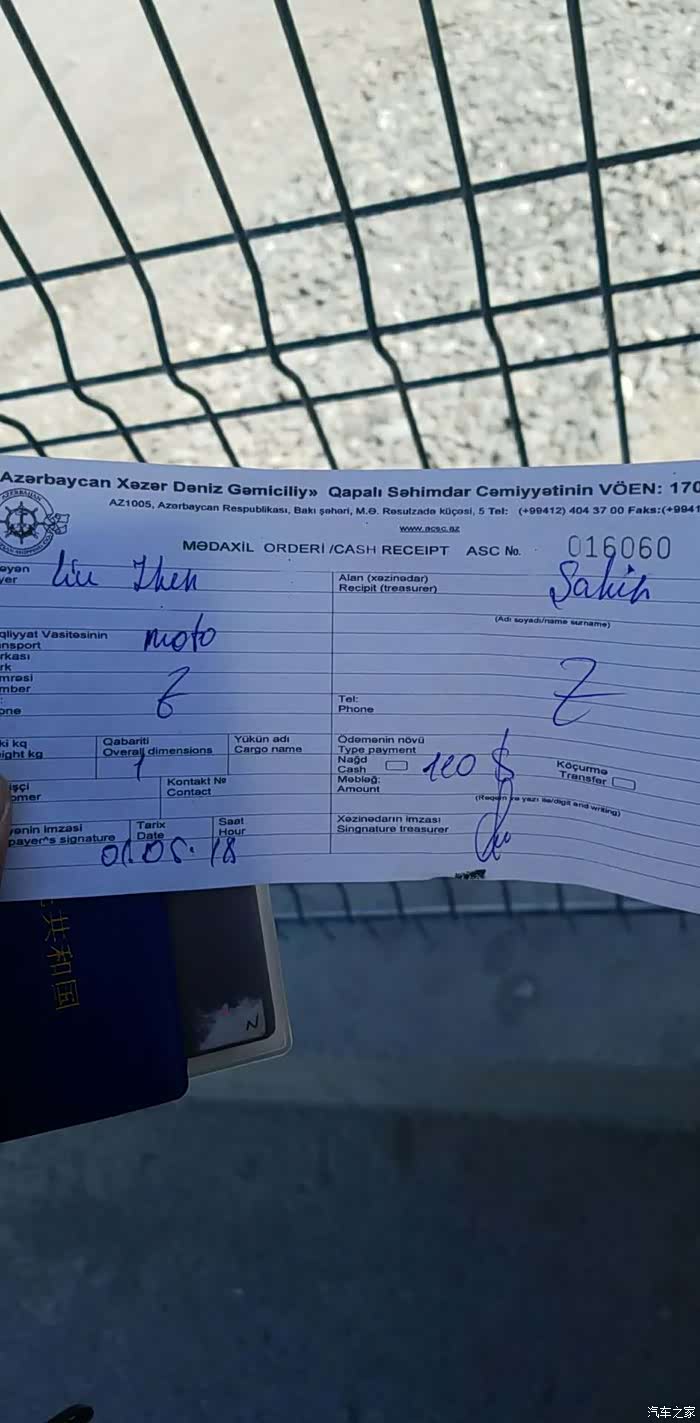 Azərbaycan Xəzər Dəniz Gəmiciliy» Qapalı Səhimdar Cəmiyyətinin VÖEN: 170
AZ1005, Azərbaycan Respublikası, Bakı şəhəri, M.Ə. Rəsulzadə küçəsi, 5 Tel: (+99412) 404 37 00 Faks:(+9941
www.acsc.az
MƏDAXİL ORDERİ /CASH RECEIPT ASC No. 016060
əyən
yer
Liu Zhen
Alan (xəzinədar)
Recipit (treasurer)
Sahib
(Adı soyadı/name surname)
qliyyat Vasitəsinin
nsport
moto
rkası
rk
mrəsi
mber
:
one
Z
Tel:
Phone
Z
ki kq
ight kg
Qabariti
Overall dimensions
1
Yükün adı
Cargo name
Ödəmənin növü
Type payment
Nağd
Cash
110 $
Köçürmə
Transfer
Məbləğ:
Amount
(Rəqəm və yazı ilə/digit and writing)
işçi
omer
Kontakt №
Contact
ənin imzası
payer^s signature
Tarix
Date
01.05.18
Saat
Hour
Xəzinədarın imzası
Singnature treasurer
共和国
N
汽车之家